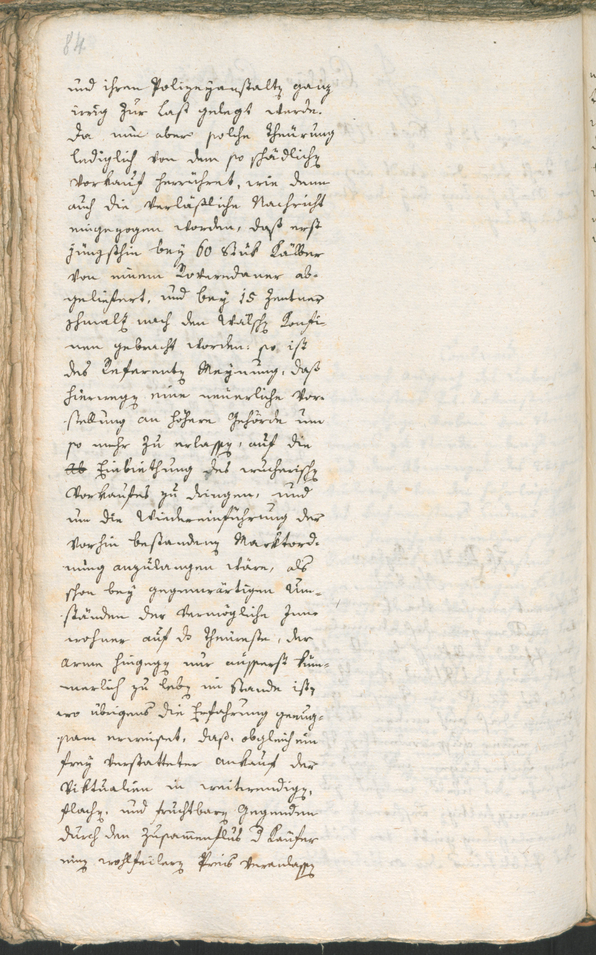 84
und ihren Polizeyanstalten ganz
irrig zur Last gelegt werde.
Da nun aber solche Theürung
lediglich von dem so schädlichen
Vorkauf herrühret, wie dann
auch die verläßliche Nachricht
eingezogen worden, daß erst
jüngsthin bey 60 Stük Kälber
von einem Roveredaner ab-
geliefert, und bey 15 Zenten
schmalz nach den Wälschen Konfi-
nen gebracht worden: so ist
des Referenten Meynung, daß
hierwegen eine neüerliche Vor-
stellung an höhere Behörde um
so mehr zu erlassen, auf die
Einbiethung des wucherischen
Vorkaufes zu dringen, und
um die Wiedereinführung der
vorhin bestandenen Marktord-
nung anzulangen wäre, als
schon bey gegenwärtigen Um-
ständen der Vermögliche Inn-
wohner auf das Theüreste, der
Arme hingegen nur aüsserst küm-
merlich zu leben im Stande ist,
wo übrigens die Erfahrung genug-
sam erweiset, daß, obgleich ein
frey verstatteter ankauf der
Viktualien in weitwendigen,
flachen, und fruchtbaren Gegenden
durch den Zusammenflus der Kaüfer
einen wohlfeileren Preis veranlassen